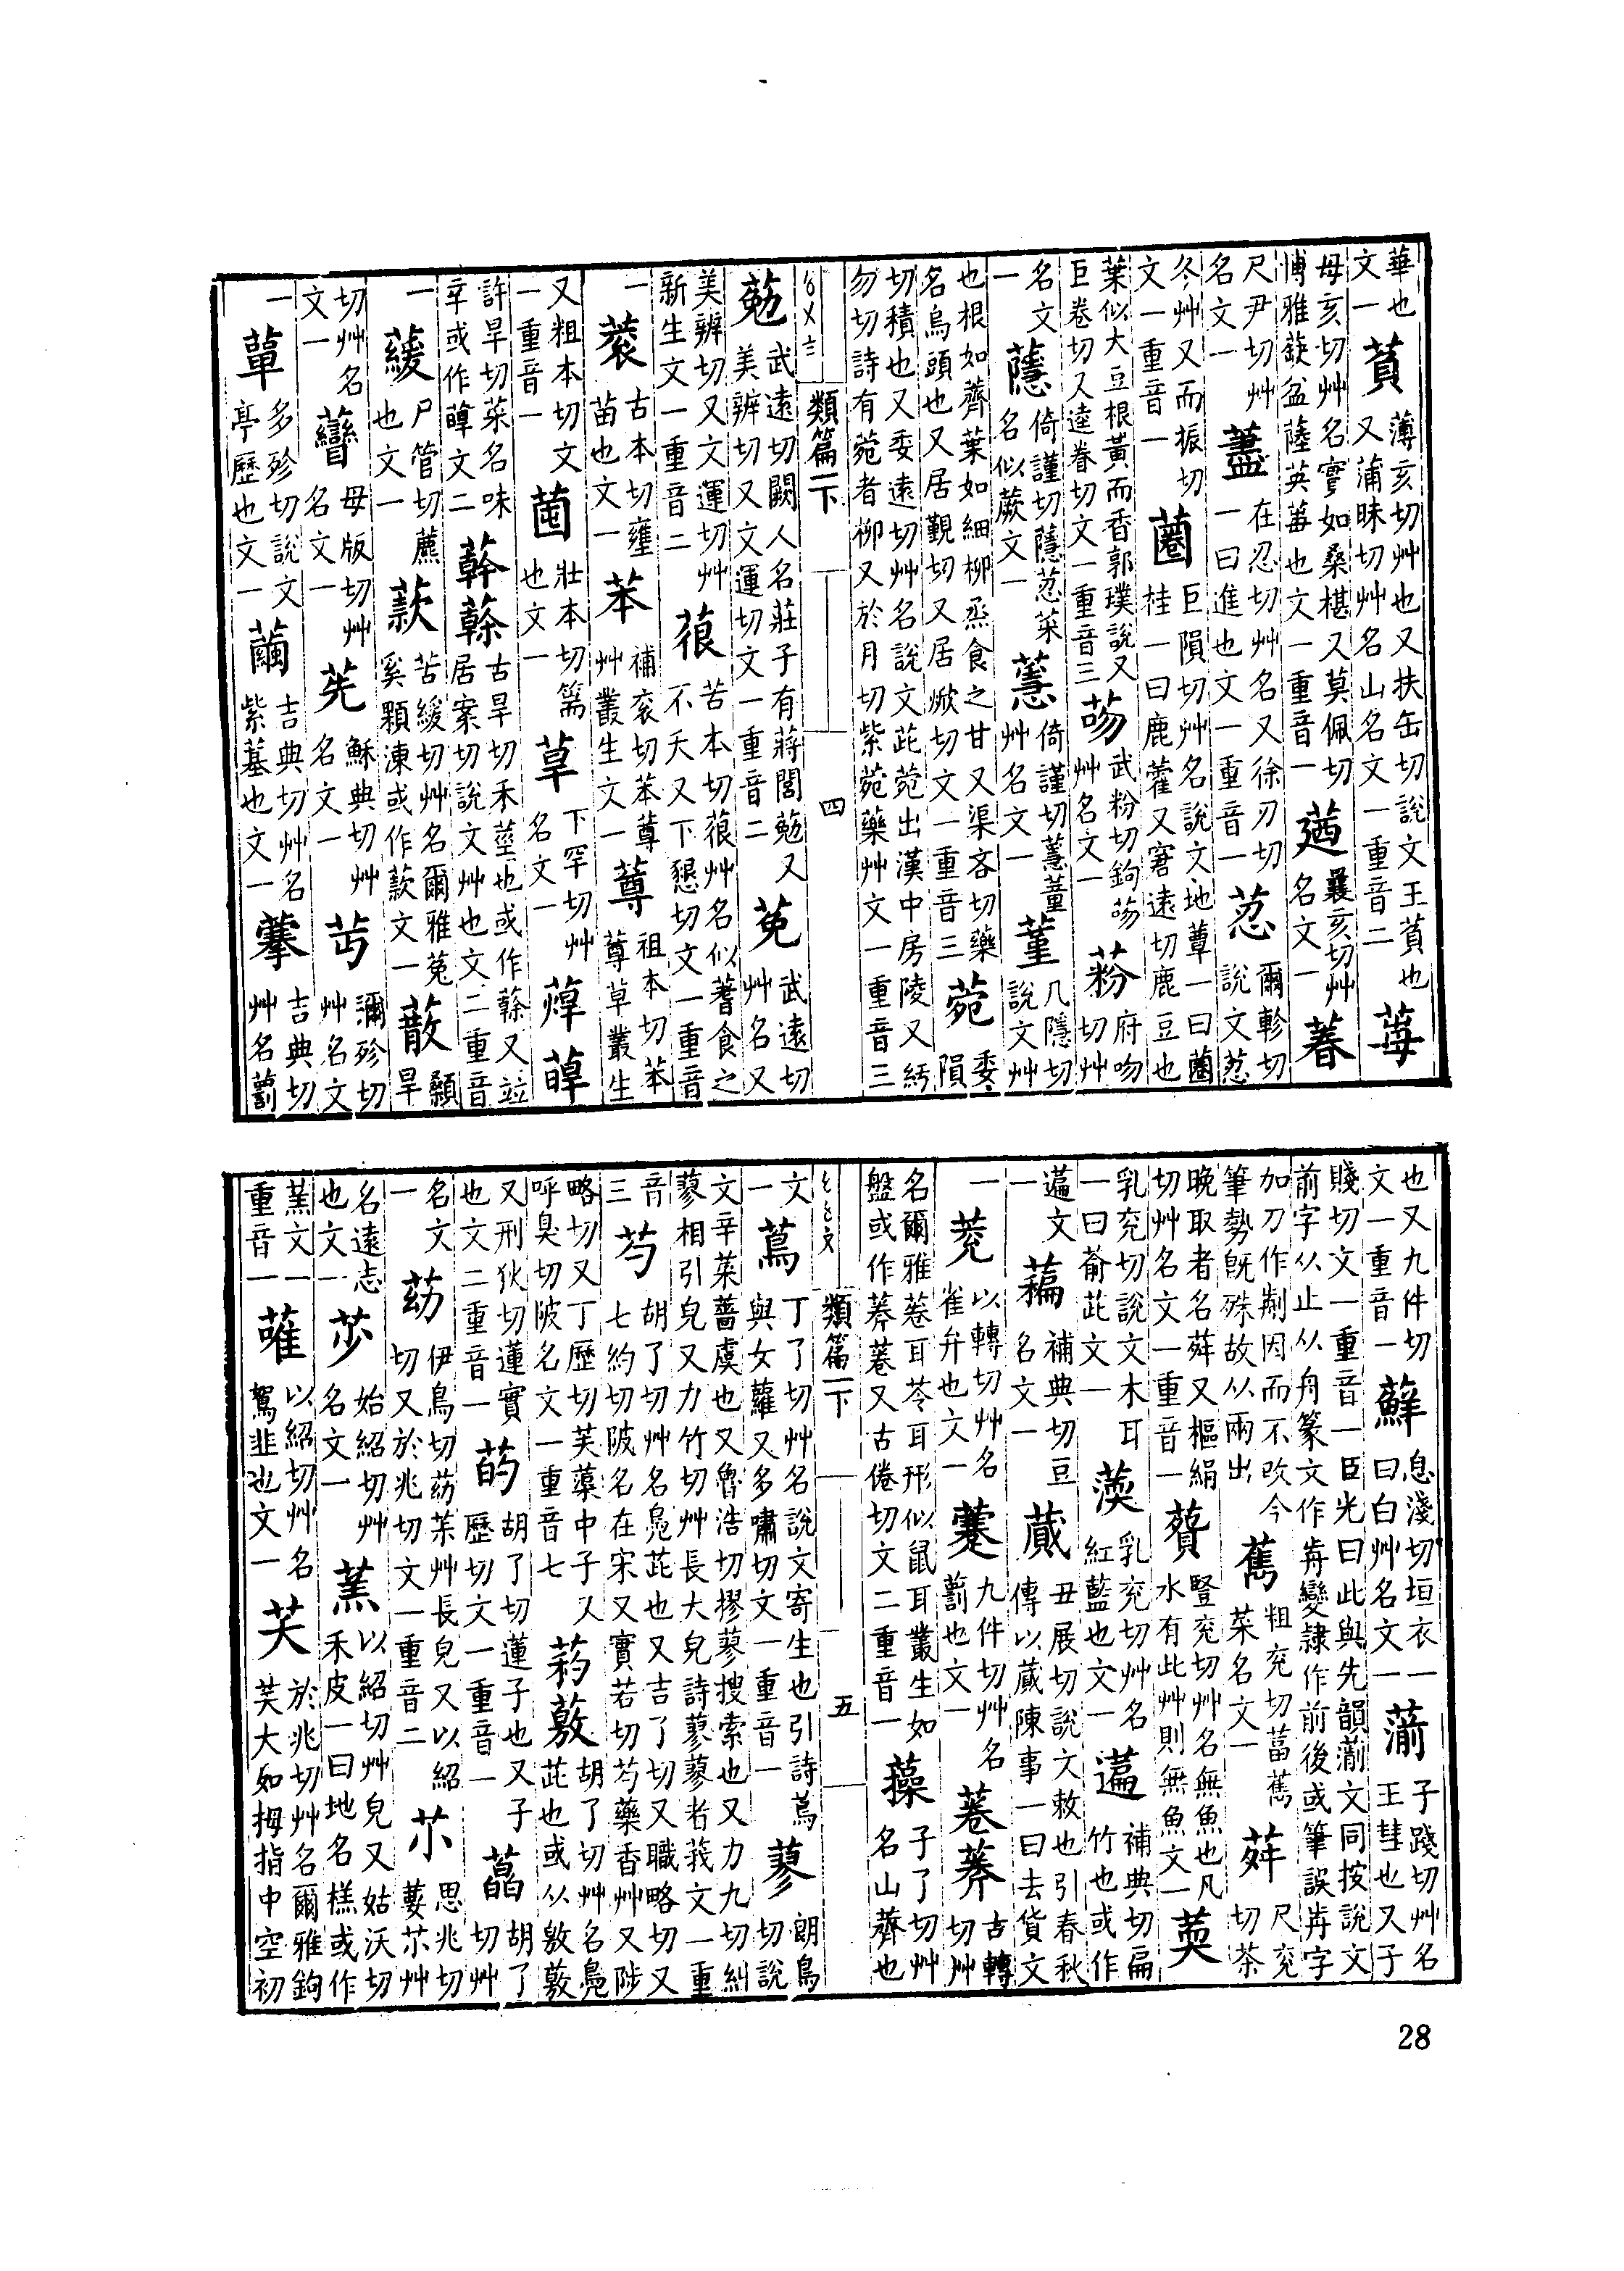 華也文一 萯 薄亥切艸也又扶缶切說文王萯也又蒲昧切艸名山名文一重音二 莓
母亥切艸名實如桑椹又莫佩切博雅蒛盆陸英莓也文一重音一 䔭 曩亥切艸名文一 萶
尺尹切艸名文一 藎 在忍切艸名又徐刃切一曰進也文一重音一 荵 爾軫切說文荵
冬艸又而振切文一重音一 菌 巨隕切艸名說文地蕈一曰菌桂一曰鹿藿又窘遠切鹿豆也
葉似大豆根黃而香郭璞說又巨卷切又逵眷切文一重音三 芴 武粉切鉤芴艸名文一 䒩 府吻切艸
名文一 蘟 倚謹切蘟荵菜名似蕨文一 䓨 倚謹切艸名文一 蓳 几隱切說文艸
也根如薺葉如細柳烝食之甘又渠吝切藥名烏頭也又居覲切又居焮切文一重音三 菀 委隕
切積也又委遠切艸名說文茈菀出漢中房陵又紆勿切詩有菀者柳又於月切紫菀藥艸文一重音三
類篇一下 四
葂 武遠切闕人名莊子有蔣閭葂又美辨切又文運切文一重音二 莬 武遠切艸名又
美辨切又文運切艸新生文一重音二 蒗 苦本切艸名似蓍食之不夭又下懇切文一重音
一 蓘 古本切壅苗也文一 苯 補衮切苯䔿艸叢生文一 䔿 祖本切苯䔿草叢生
又粗本切文一重音一 菌 壯本切篅也文一 䓍 下罕切艸名文一 蔊 䓍
許旱切菜名味辛或作䓍文二 𦼮 𦾮 古旱切禾莖也或作𦾮又居案切說文艸也文二重音
一 葮 尸管切藨也文一 款 苦緩切艸名爾雅菟奚顆涷或作款文一 蔜 顙旱
切艸名文一 矕 母版切艸名文一 茪 穌典切艸名文一 芇 彌殄切艸名文
一 蕇 多殄切說文亭歷也文一 繭 吉典切艸名紫墓也文一 蹇 吉典切艸名葪
也又九件切文一重音一 蘚 息淺切垣衣一曰白艸名文一 葥 子踐切艸名王彗也又子
賤切文一重音一臣光曰此與先韻葥文同按說文前字从止从舟篆文作歬變隸作前後或筆誤歬字
加刀作剪因而不改今筆勢旣殊故从兩出 蒨 粗兗切葍蒨菜名文一 荈 尺兗切茶
晚取者名荈又樞絹切艸名文一重音一 蕦 豎兗切艸名無魚也凡水有此艸則無魚文一 萸
乳兗切說文木耳一曰萮茈文一重音一 蝡 乳兗切艸名紅藍也文一 藊 補典切扁竹也或作
萹文一 藊 補典切豆名文一 蕆 丑展切說文敕也引春秋傳以蕆陳事一曰去貨文
一 莌 以轉切艸名雀弁也文一 蹇 九件切艸名葪也文一 菤 莾 古轉切艸
名爾雅菤耳苓耳形似鼠耳叢生如盤或作莾菤又古倦切文二重音一 藻 子了切艸名山薺也
類篇一下 五
文一 蔦 丁了切艸名說文寄生也引詩蔦與女蘿又多嘯切文一重音一 蓼 朗鳥切說
文辛菜薔虞也又魯浩切摎蓼搜索也又力九切糾蓼相引皃又力竹切艸長大皃詩蓼蓼者莪文一重
音三 芍 胡了切艸名鳧茈也又吉了切又職略切又七約切陂名在宋又實若切芍藥香艸又陟
略切又丁歷切芙蕖中子又呼臭切陂名文一重音七 葯 䕋 胡了切艸名鳧茈也或从敫䕋
又刑狄切蓮實也文二重音一 菂 胡了切蓮子也又子歷切文一重音一 藠 胡了切艸
名文一 苭 伊鳥切苭茮艸長皃又以紹切又於兆切文一重音二 芥 思兆切艸
名遠志也文一 莏 始紹切艸名文一 䔄 以紹切艸皃又姑沃切禾皮一曰地名糕或作
䔄文一重音一 蓶 以紹切艸名鴛韭也文一 芺 於兆切艸名爾雅鉤芺大如拇指中空初
28